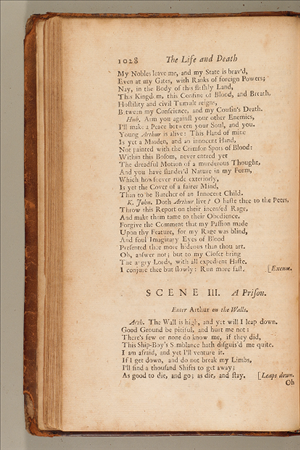 1028 The Life and Death
My Nobles leave me, and my State is brav'd,
Even at my Gates, with Ranks of foreign Powers;
Nay, in the Body of this fleshly Land,
This Kingdom, this Confine of Blood, and Breath,
Hostility and civil Tumult reigns,
Between my Conscience, and my Cousin's Death.
Hub. Arm you against your other Enemies,
I'll make a Peace between your Soul, and you.
Young Arthur is alive: This Hand of mine
Is yet a Maiden, and an innocent Hand,
Not painted with the Crimson Spots of Blood:
Within this Bosom, never entred yet
The dreadful Motion of a murderous Thought,
And you have slander'd Nature in my Form,
Which howsoever rude exteriorly,
Is yet the Cover of a fairer Mind,
Than to be Butcher of an Innocent Child.
K. John. Doth Arthur live? O haste thee to the Peers,
Throw this Report on their incensed Rage,
And make them tame to their Obedience,
Forgive the Comment that my Passion made
Upon thy Feature, for my Rage was blind,
And foul Imaginary Eyes of Blood
Presented thee more hideous than thou art.
Oh, answer not; but to my Closet bring
The angry Lords, with all expedient Haste,
I conjure thee but slowly: Run more fast. [Exeunt.
SCENE III. A Prison.
Enter Arthur on the Walls.
Arth. The Wall is high, and yet will I leap down.
Good Ground be pitiful, and hurt me not:
There's few or none do know me, if they did,
This Ship-Boy's Semblance hath disguis'd me quite.
I am afraid, and yet I'll venture it.
If I get down, and do not break my Limbs,
I'll find a thousand Shifts to get away;
As good to die, and go; as die, and stay. [Leaps down.
Oh